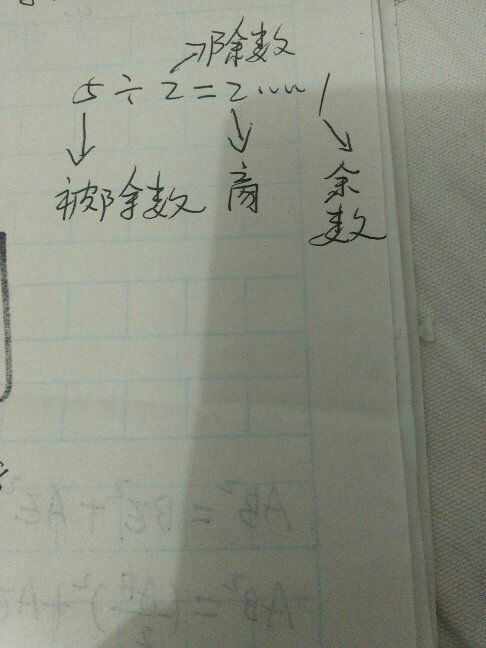 除数
5÷2=2……1
被除数 商 余数
AB²=BE²+AE²